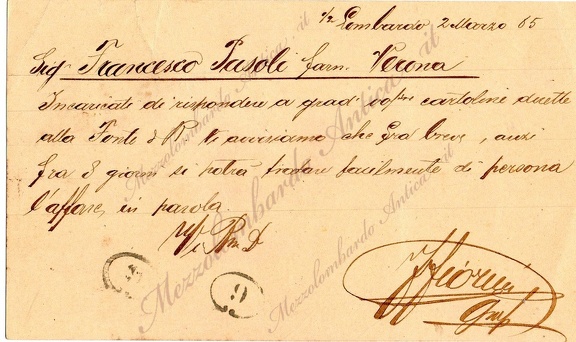 ½ Lombardo 2 Marzo 65
Sig Francesco Pasoli farm. Verona
Incaricati di rispondere a grad. cartoline dirette
alla Fonte di avvisiamo che fra breve, anzi
fra 8 giorni si potrà trattare facilmente di persona
l'affare in parola.
6
Mezzolombardo Antica .it
Mezzolombardo Antica .it
Mezzolombardo Antica .it